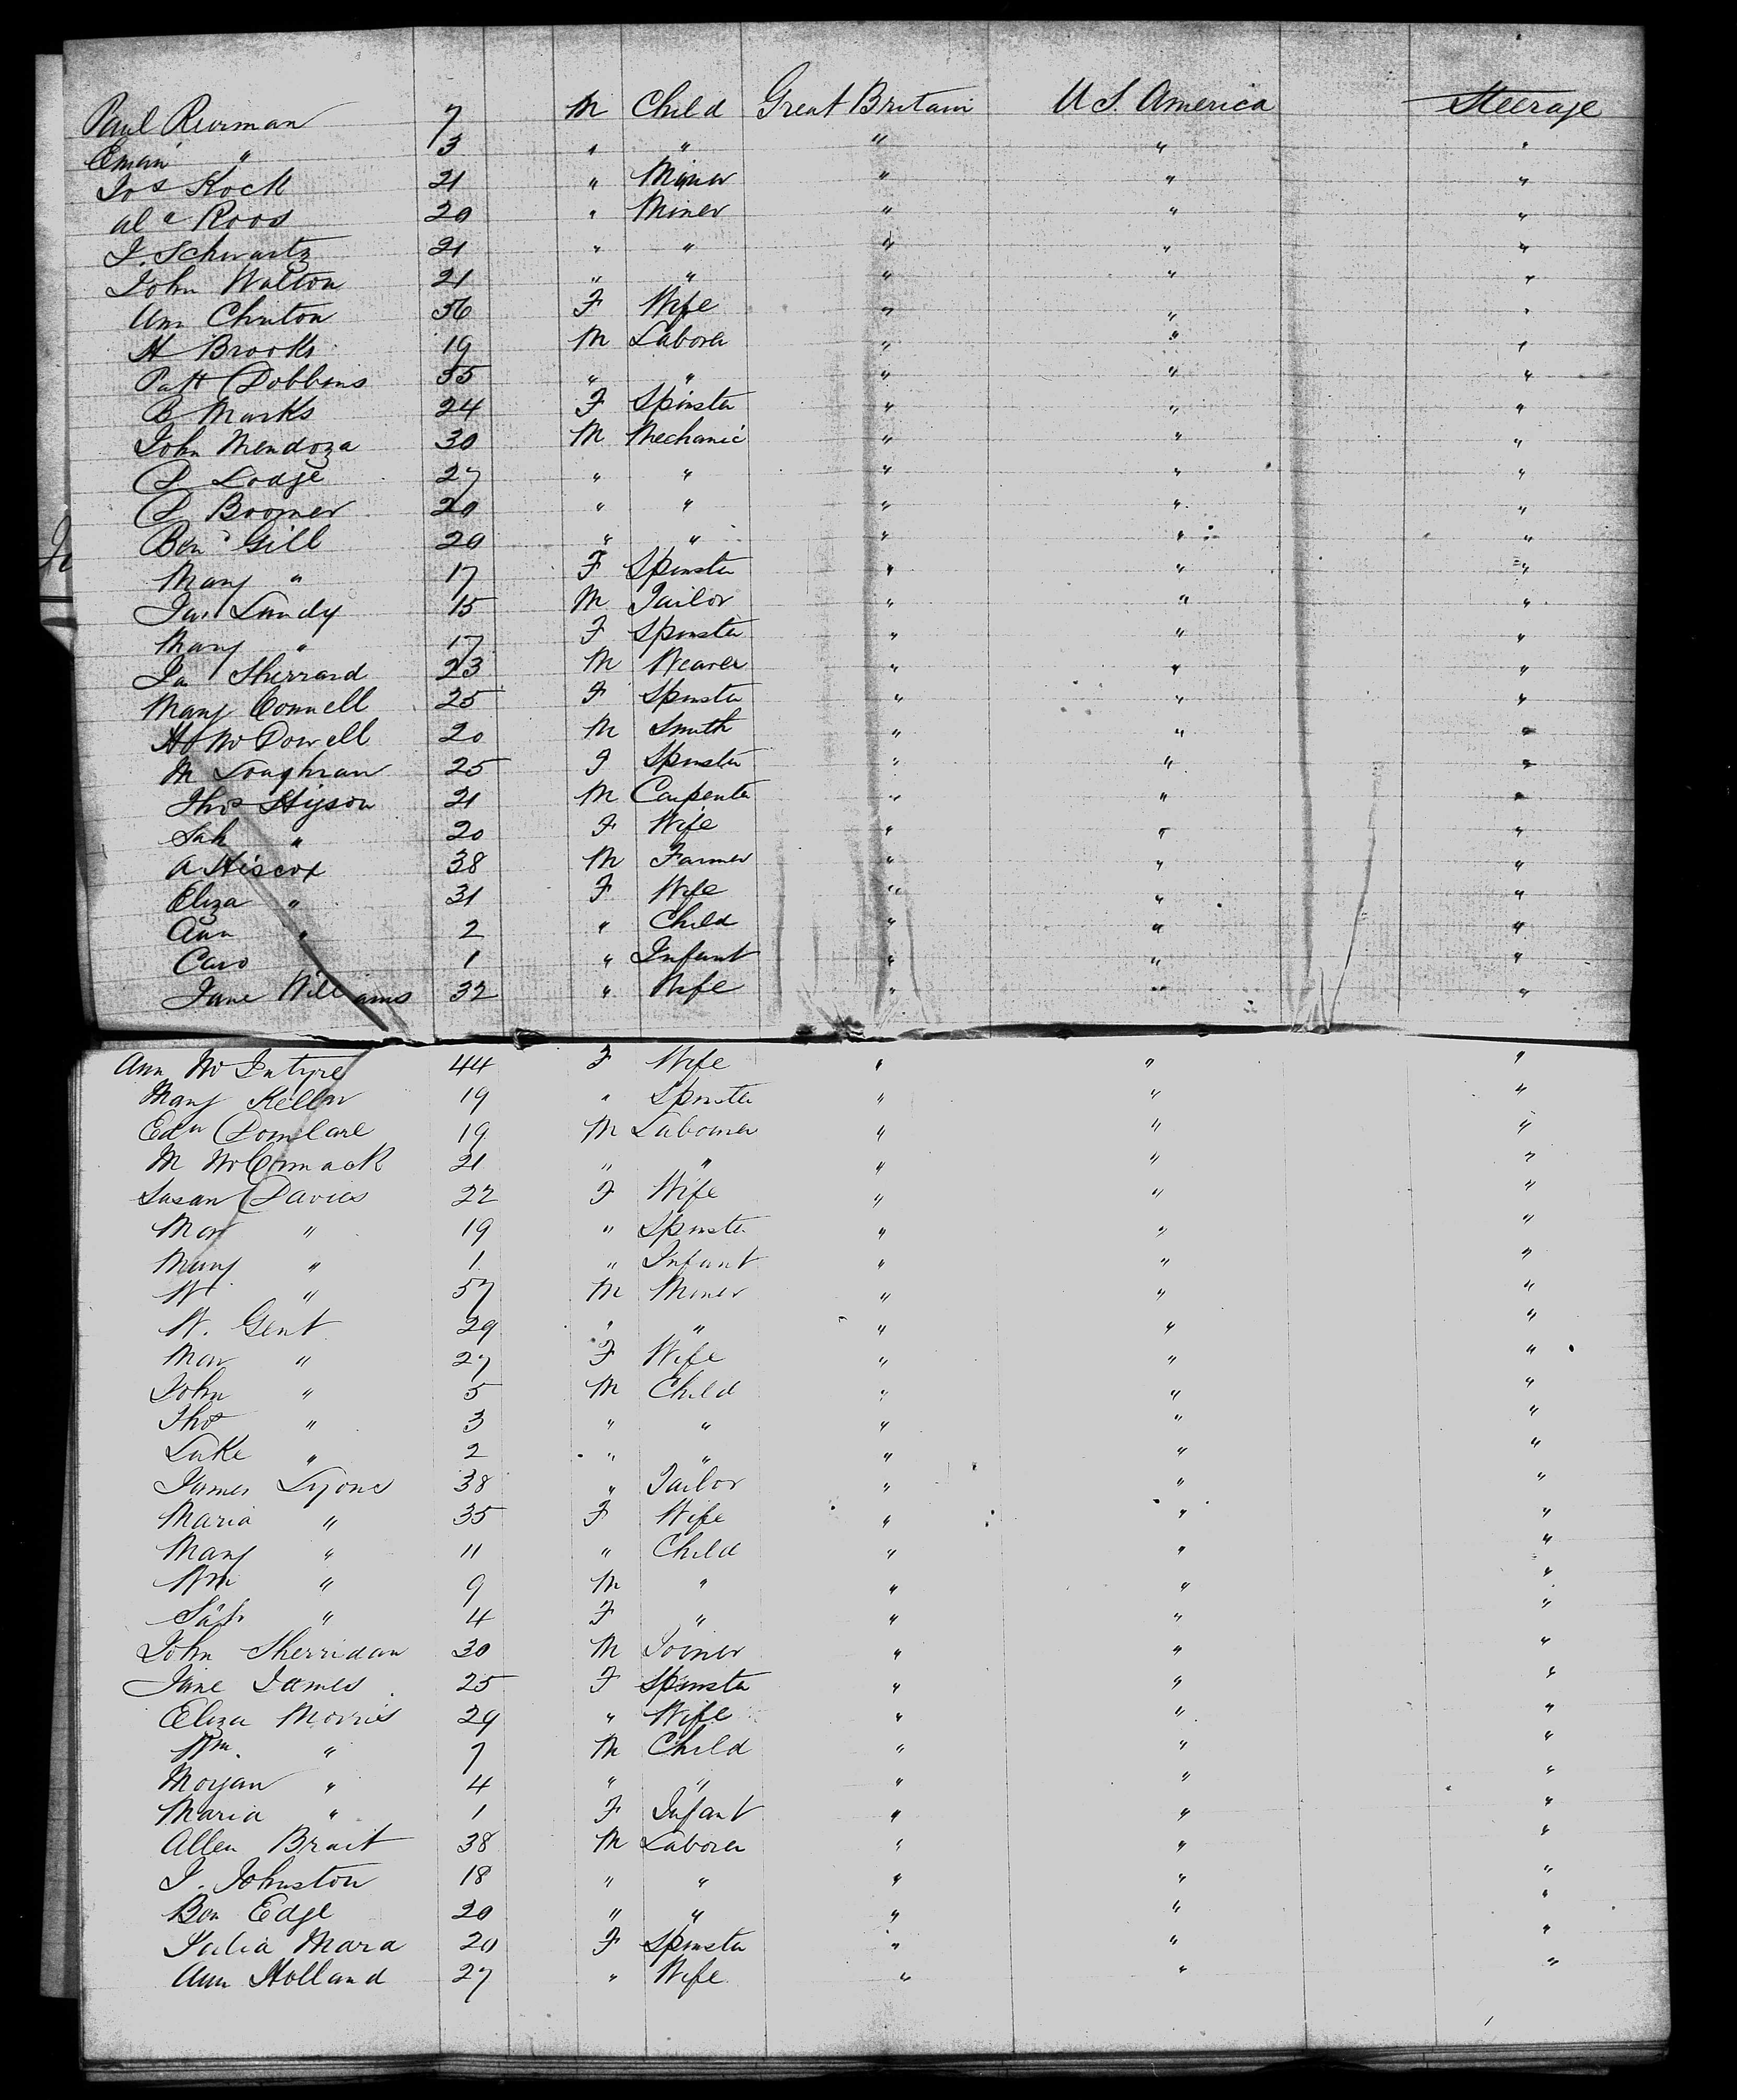 Paul Reurman 7 M Child Great Britain U.S. America Steerage
Eman " 3 " " " " "
Jos Kock 21 " Miner " " "
Al Roos 20 " Miner " " "
J. Schwartz 21 " " " " "
John Walton 21 " " " " "
Ann Clinton 36 F Wife " " "
H Brooks 19 M Laborer " " "
Patt Dobbins 35 " " " " "
B Marks 24 F Spinster " " "
John Mendoza 30 M Mechanic " " "
P Lodge 27 " " " " "
P Boomer 20 " " " " "
Ben Gill 20 " " " " "
Mary " 17 F Spinster " " "
Jas Lundy 15 M Tailor " " "
Mary " 17 F Spinster " " "
Ja Sherrard 23 M Weaver " " "
Mary Connell 25 F Spinster " " "
H McDowell 20 M Smith " " "
M Loughran 25 F Spinster " " "
Thos Hyson 21 M Carpenter " " "
Sah " 20 F Wife " " "
A Hiscox 38 M Farmer " " "
Eliza " 31 F Wife " " "
Ann " 2 " Child " " "
Caro 1 " Infant " " "
Jane Williams 32 " Wife " " "
Ann McIntyre 44 F Wife " " "
Mary Keller 19 " Spinster " " "
Edw 19 M Labourer " " "
M McCormack 21 " " " " "
Susan Davies 22 F Wife " " "
Mar " 19 " Spinster " " "
Mary " 1 " Infant " " "
W " 57 M Miner " " "
W. Gent 29 " " " " "
Mar " 27 F Wife " " "
John " 5 M Child " " "
Thos " 3 " " " " "
Luke " 2 " " " " "
James Lyons 38 " Tailor " " "
Maria " 35 F Wife " " "
Mary " 11 " Child " " "
Wm " 9 M " " " "
Sah " 4 F " " " "
John Sherridan 30 M Joiner " " "
Jane James 25 F Spinster " " "
Eliza Morris 29 " Wife " " "
Wm. " 7 M Child " " "
Morgan " 4 " " " " "
Maria " 1 F Infant " " "
Allen Brait 38 M Laborer " " "
J. Johnston 18 " " " " "
Ben Edge 20 " " " " "
Julia Mara 20 F Spinster " " "
Ann Holland 27 " Wife " " "